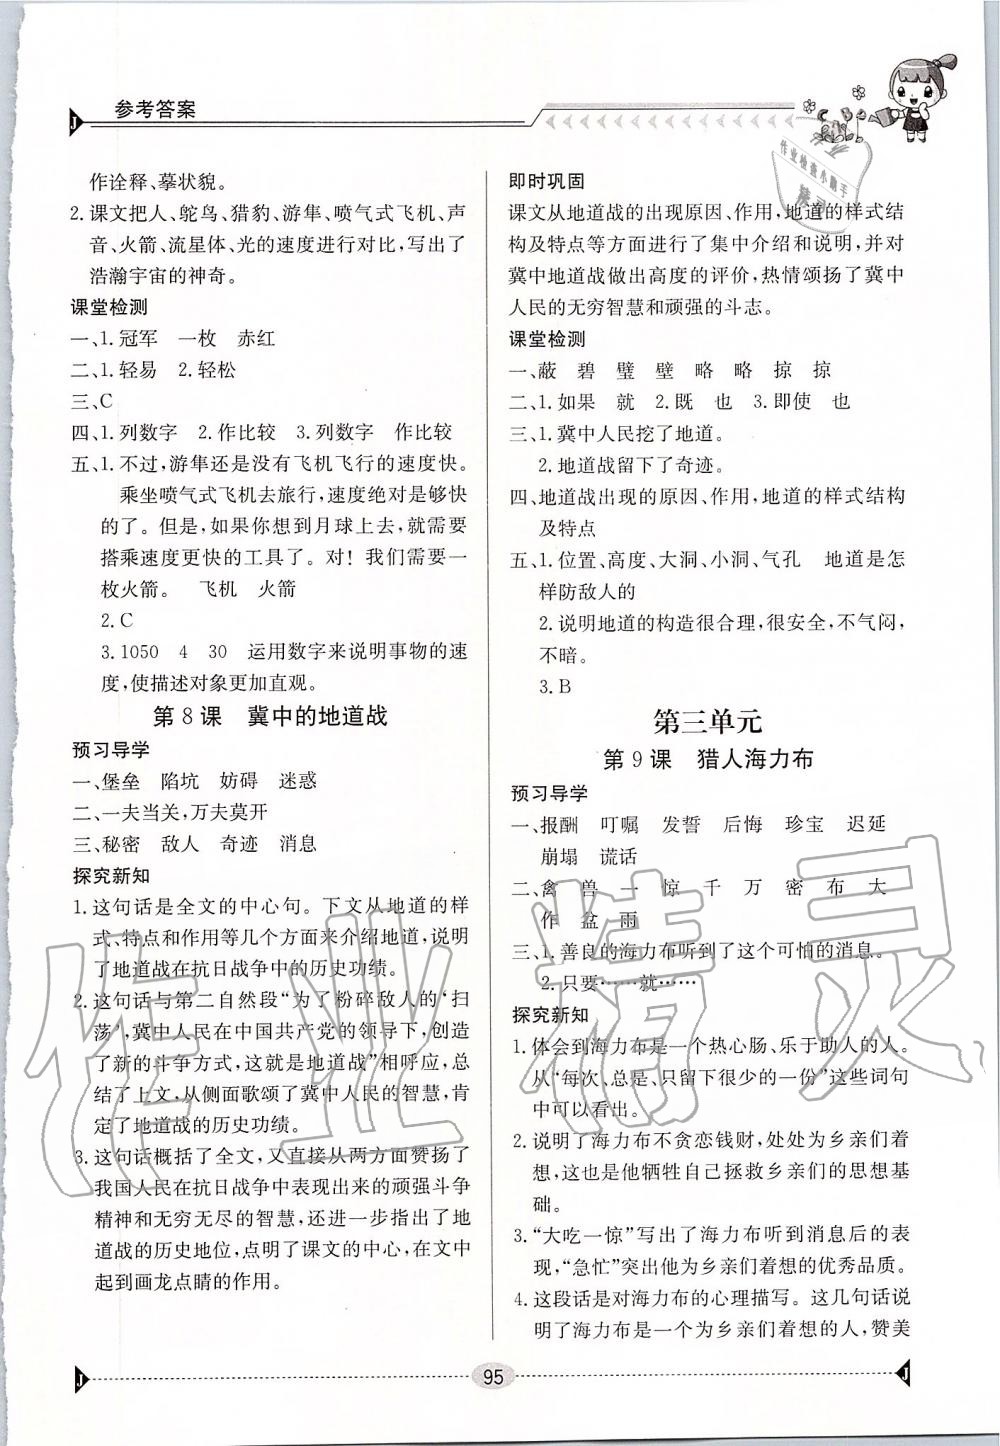 参考答案
作诠释、摹状貌。
2. 课文把人、鸵鸟、猎豹、游隼、喷气式飞机、声
音、火箭、流星体、光的速度进行对比，写出了
浩瀚宇宙的神奇。
课堂检测
一、1. 冠军 一枚 赤红
二、1. 轻易 2. 轻松
三、C
四、1. 列数字 2. 作比较 3. 列数字 作比较
五、1. 不过，游隼还是没有飞机飞行的速度快。
乘坐喷气式飞机去旅行，速度绝对是够快
的了。但是，如果你想到月球上去，就需要
搭乘速度更快的工具了。对！我们需要一
枚火箭。 飞机 火箭
2. C
3. 1050 4 30 运用数字来说明事物的速
度，使描述对象更加直观。
第 8 课 冀中的地道战
预习导学
一、堡垒 陷坑 妨碍 迷惑
二、一夫当关，万夫莫开
三、秘密 敌人 奇迹 消息
探究新知
1. 这句话是全文的中心句。下文从地道的样
式、特点和作用等几个方面来介绍地道，说明
了地道战在抗日战争中的历史功绩。
2. 这句话与第二自然段“为了粉碎敌人的‘扫
荡’，冀中人民在中国共产党的领导下，创造
了新的斗争方式，这就是地道战”相呼应，总
结了上文，从侧面歌颂了冀中人民的智慧，肯
定了地道战的历史功绩。
3. 这句话概括了全文，又直接从两方面赞扬了
我国人民在抗日战争中表现出来的顽强斗争
精神和无穷无尽的智慧，还进一步指出了地
道战的历史地位，点明了课文的中心，在文中
起到画龙点睛的作用。
即时巩固
课文从地道战的出现原因、作用，地道的样式结
构及特点等方面进行了集中介绍和说明，并对
冀中地道战做出高度的评价，热情颂扬了冀中
人民的无穷智慧和顽强的斗志。
课堂检测
一、蔽 碧 璧 壁 略 略 掠 掠
二、1. 如果 就 2. 既 也 3. 即使 也
三、1. 冀中人民挖了地道。
2. 地道战留下了奇迹。
四、地道战出现的原因、作用，地道的样式结构
及特点
五、1. 位置、高度、大洞、小洞、气孔 地道是怎
样防敌人的
2. 说明地道的构造很合理，很安全，不气闷，
不暗。
3. B
第三单元
第 9 课 猎人海力布
预习导学
一、报酬 叮嘱 发誓 后悔 珍宝 迟延
崩塌 谎话
二、禽 兽 一 惊 千 万 密 布 大
作 盆 雨
三、1. 善良的海力布听到了这个可怕的消息。
2. 只要……就……
探究新知
1. 体会到海力布是一个热心肠、乐于助人的人。
从“每次、总是、只留下很少的一份”这些词句
中可以看出。
2. 说明了海力布不贪恋钱财，处处为乡亲们着
想，这也是他牺牲自己拯救乡亲们的思想基
础。
3. “大吃一惊”写出了海力布听到消息后的表
现，“急忙”突出他为乡亲们着想的优秀品质。
4. 这段话是对海力布的心理描写。这几句话说
明了海力布是一个为乡亲们着想的人，赞美
95
作业精灵
作业检查小助手